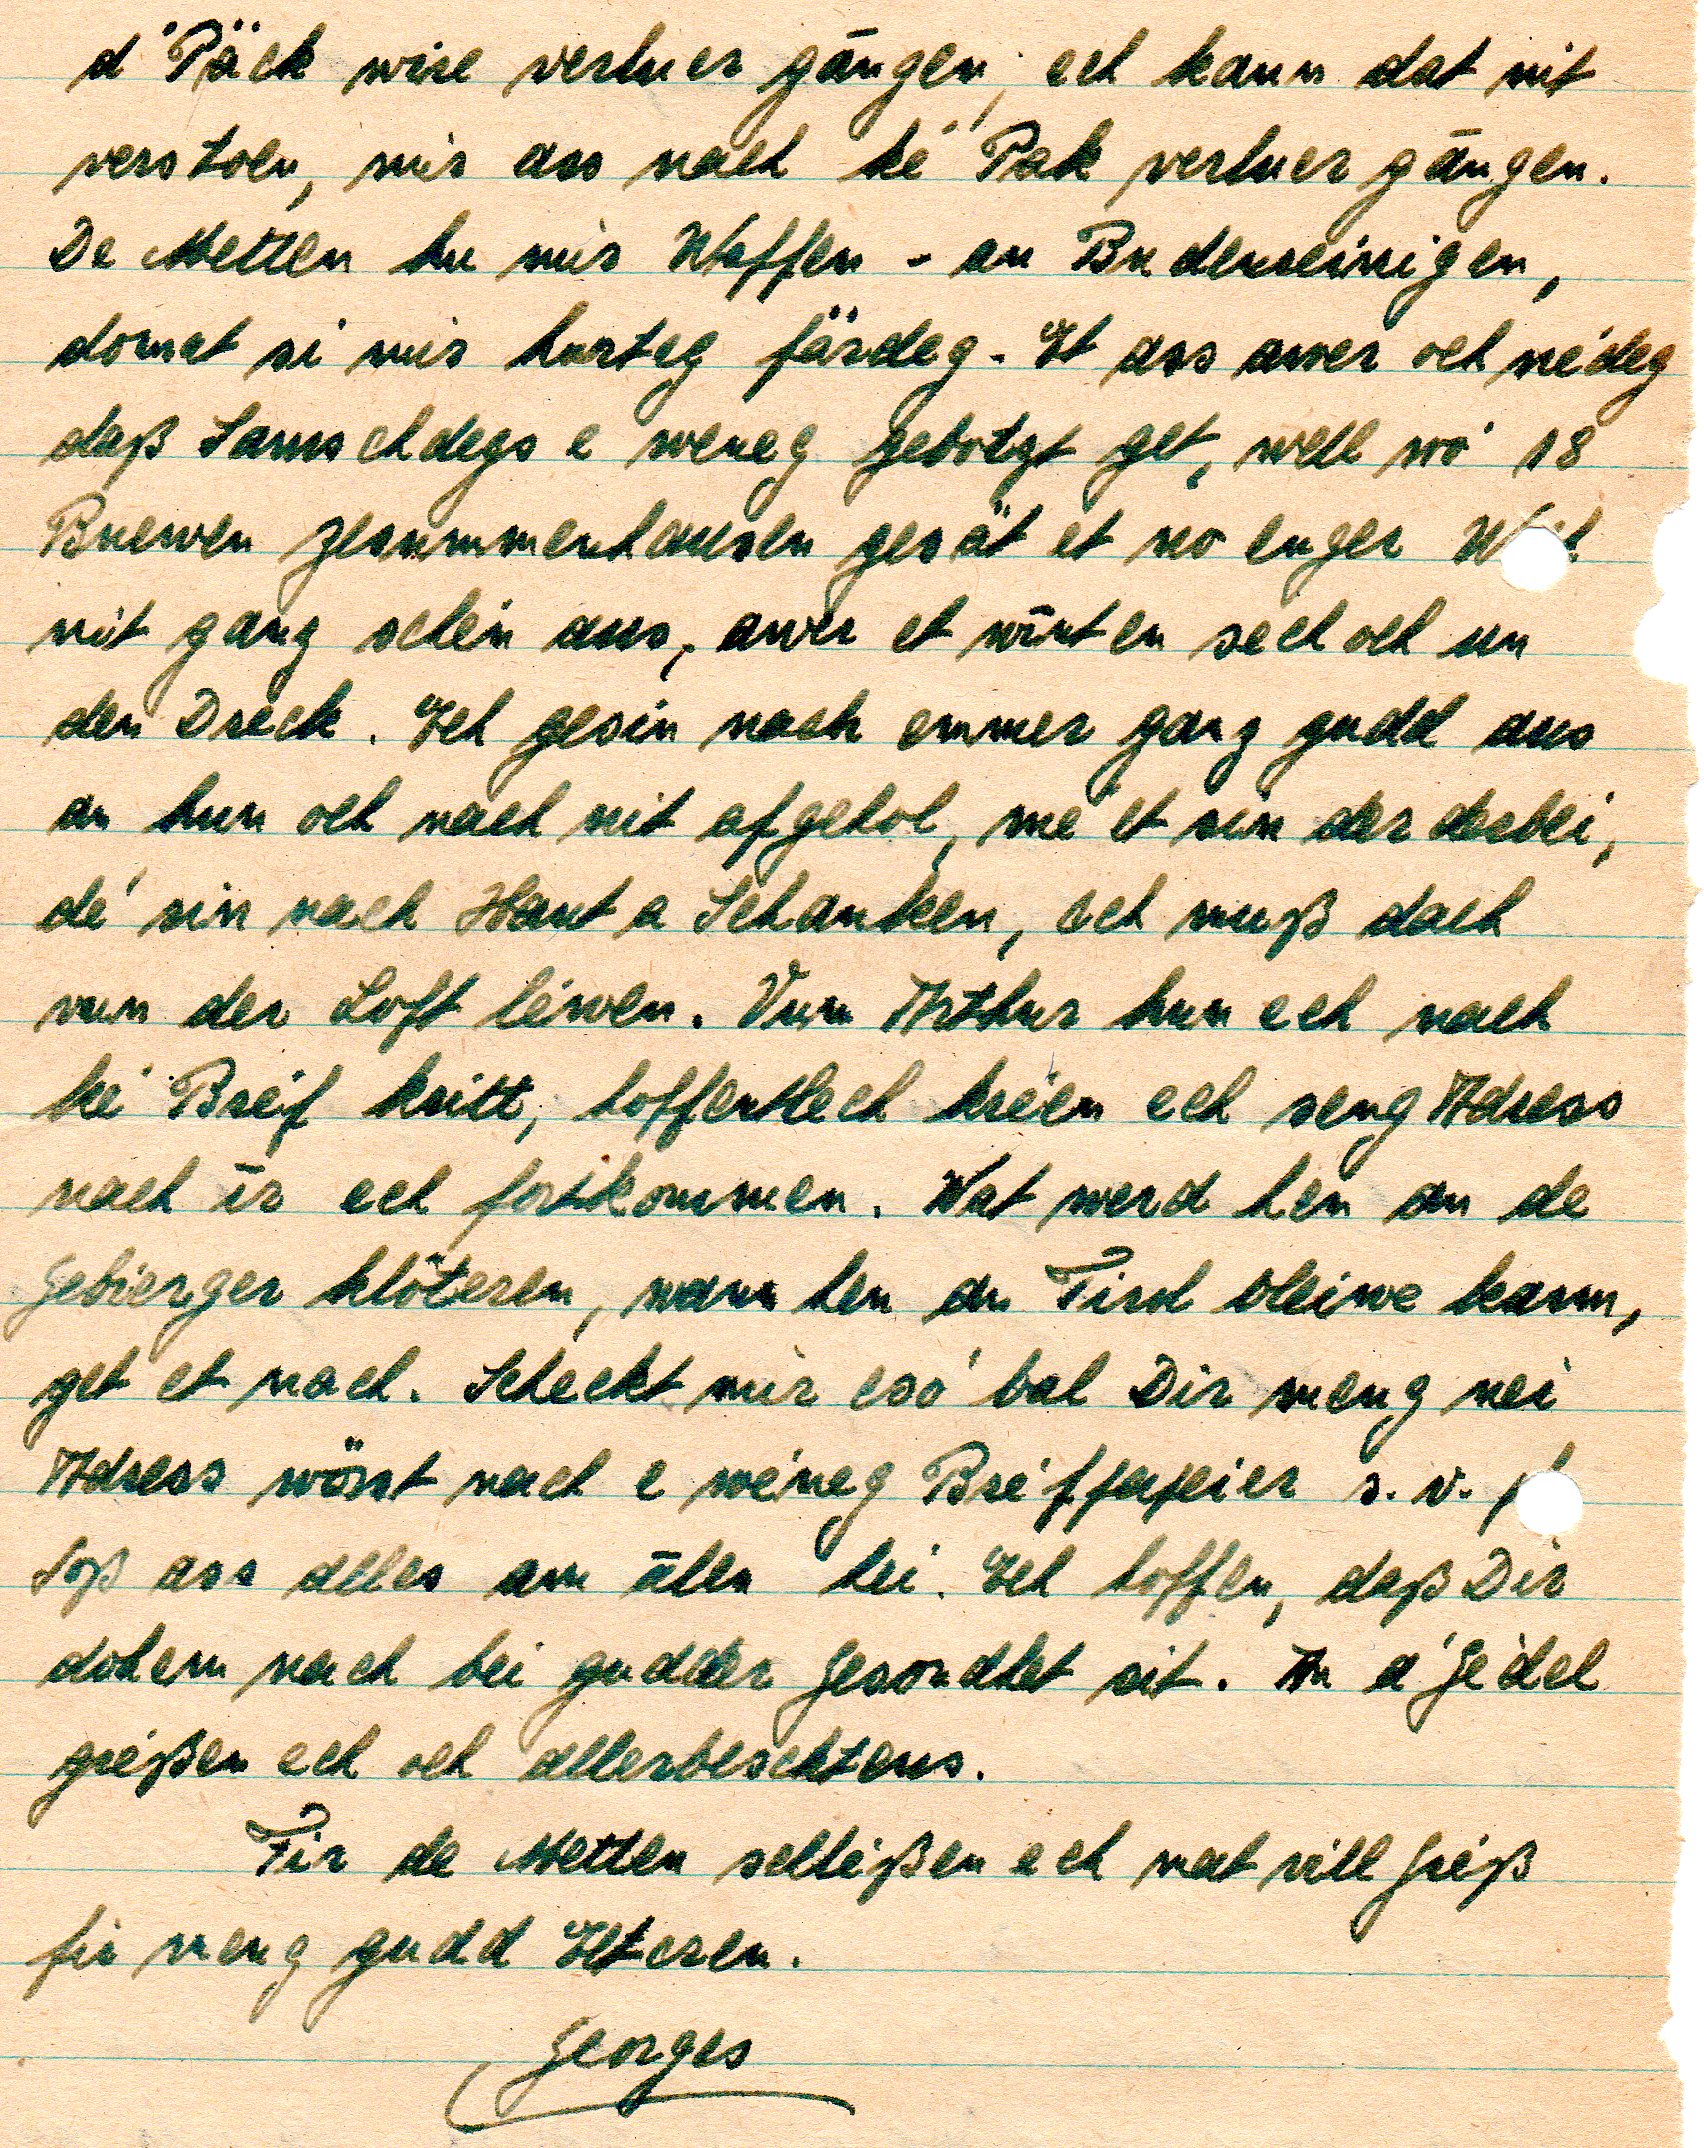 d'Päck wire verluer gängen, ech kann dat nit
verstoen, mir ass nach ké Pak verluer gängen.
De Metten hu mir Waffen - an Budenreinigen,
domat si mir hurteg färdeg. Et ass awer och nédeg
daß Samschdegs e weneg gebotzt get, well wó 18
Buewen zesummenhausen gesäit et no enger
nit ganz schéin aus, awer et wünten sech och un
den Dreck. Ech gesin nach emmer ganz gudd aus
an hun och nach nit afgehol, mé et sin der derbei,
dé sin nach Haut a Schanken, ech muß dach
vun der Loft léiwen. Vum Arthur hun ech nach
kéi Bréif kritt, hoffentlech kréien ech seng Adress
nach ir ech fortkommen. Wat werd hen an de
Gebierger klöteren, wann hen an Tirol bleiwe kann,
get et nach. Scheckt mir esó bal Dir meng nei
Adress wösst nach e wéneg Bréifpapeier s. v. p
Soß ass alles am ālen hei. Ech hoffen, daß Dir
dohem nach bei gudder Gesondhet sit. An d'Gédel
gréißen ech och allerbeschtens.
Fir de Metten schléißen ech mat vill Gréiß
fir meng gudd Elteren.
Georges